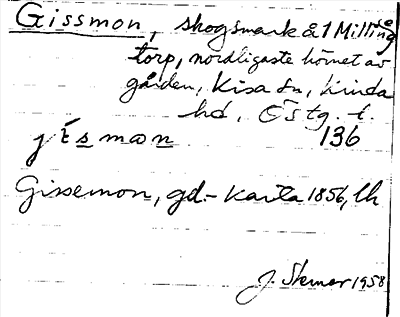 Gissmon, skogsmark å 1 Millinge
torp, nordligaste hörnet av
gården, Kisa sn, Kinda
hd, Östg. l.
jísmon 136
Gissemon, gd.- karta 1856, lh
J. Stemar 1958